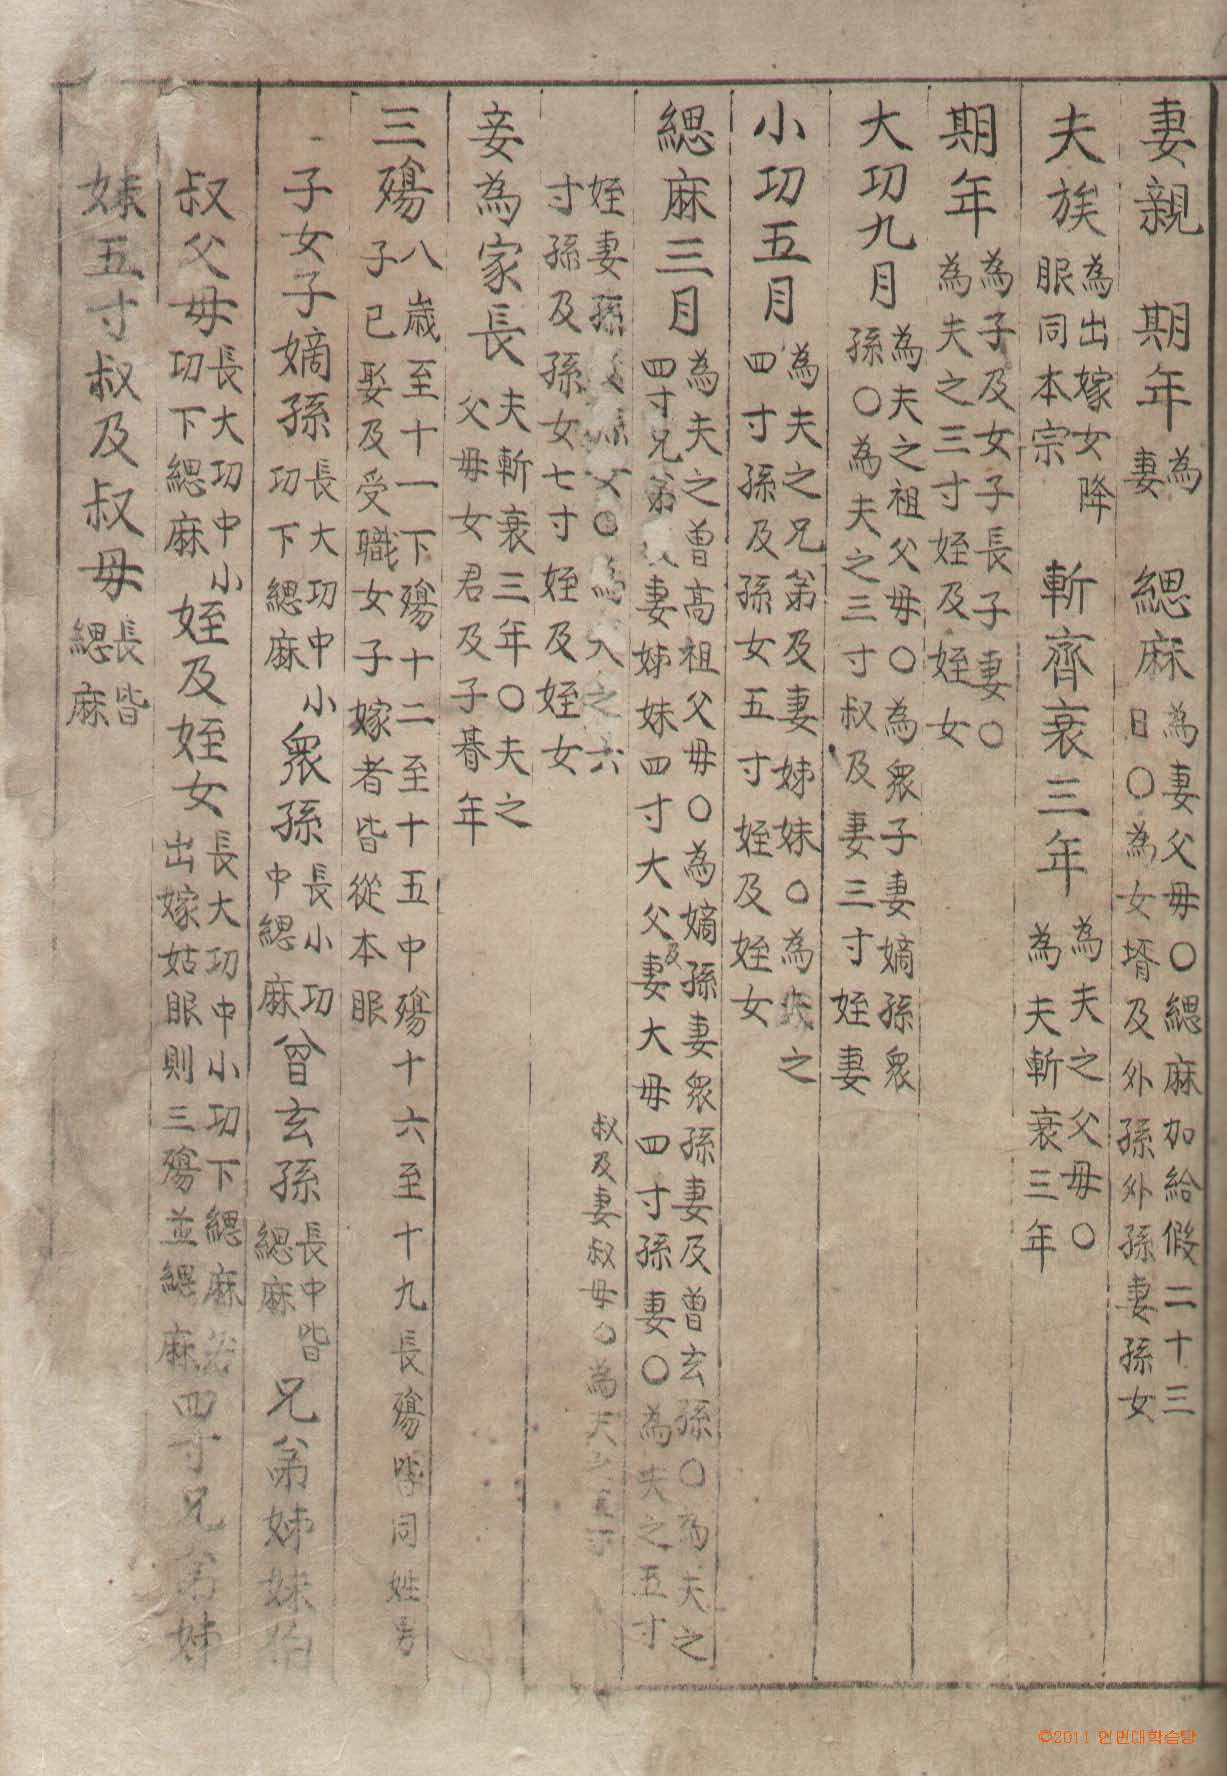 妻親 期年 為妻 緦麻 為妻父毋〇緦麻加給假二十三日〇為女壻及外孫外孫妻孫女
夫族 為出嫁女降服同本宗 斬齊衰三年 為夫之父毋〇為夫斬衰三年
期年 為子及女子長子妻〇為夫之三寸姪及姪女
大功九月 為夫之祖父毋〇為衆子妻嫡孫衆孫〇為夫之三寸叔及妻三寸姪妻
小功五月 為夫之兄弟及妻姊妹〇為夫之四寸孫及孫女五寸姪及姪女
緦麻三月 為夫之曽高祖父毋〇為嫡孫妻衆孫妻及曽玄孫〇為夫之四寸兄弟妻姊妹四寸大父及妻大毋四寸孫妻〇為夫之五寸
姪妻孫〇為夫之六寸孫及孫女七寸姪及姪女 叔及妻叔毋〇為夫
妾為家長 夫斬衰三年〇夫之父毋女君及子朞年
三殤 八歲至十一下殤十二至十五中殤十六至十九長殤 同姓男子已娶及受職女子嫁者皆從本服
子女子嫡孫 長大功中小功下緦麻 衆孫 長小功中緦麻 曾玄孫 長中皆緦麻 兄弟姊妹伯
叔父毋 長大功中小功下緦麻 姪及姪女 長大功中小功下緦麻 出嫁姑服則三殤並緦麻 四寸兄弟姊
妹五寸叔及叔毋 長皆緦麻
©2011 인민대학습당